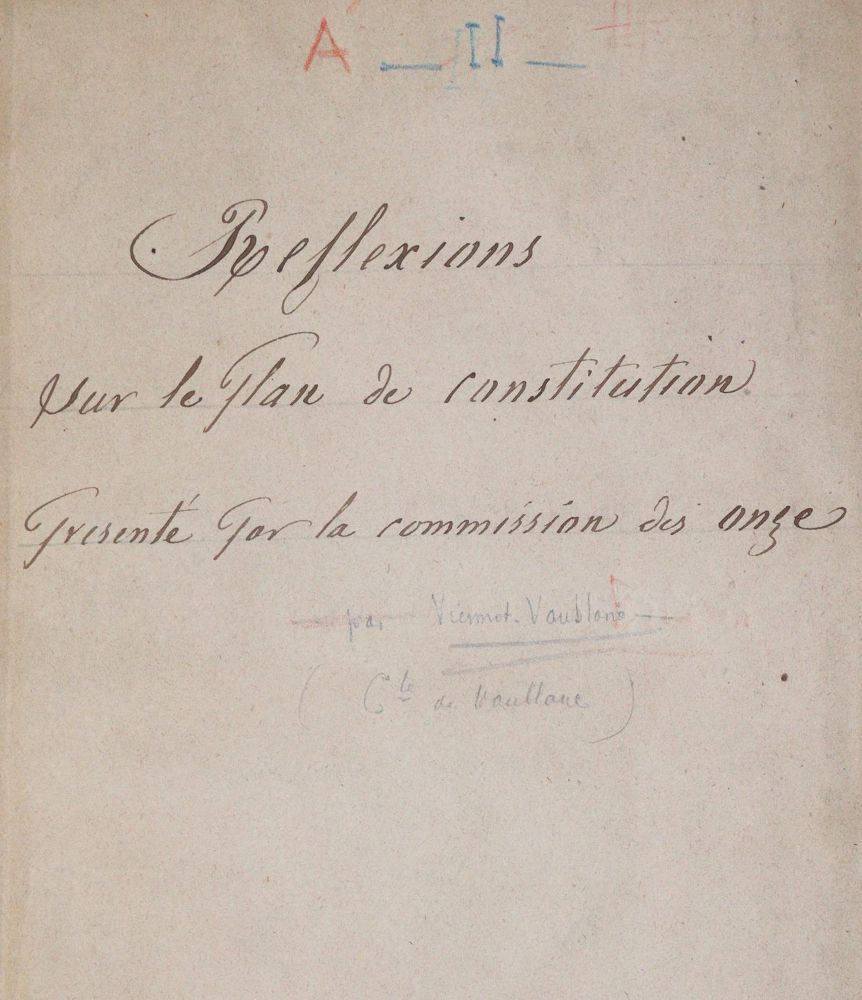 A — II —
Reflexions
sur le Plan de constitution
Presenté Par la commission des onze
— par Viénnot-Vaublanc —
( Cte de Vaublanc )